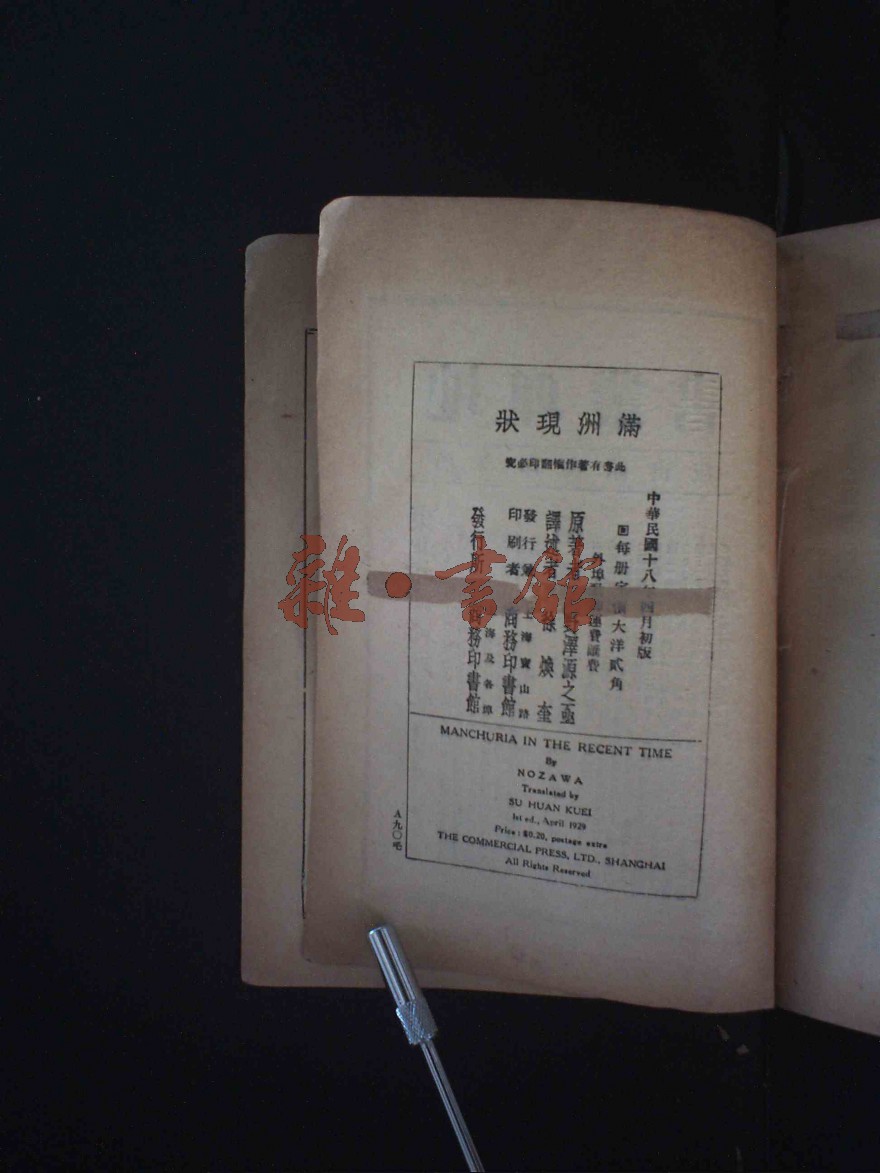 滿洲現狀
此書有著作權翻印必究
中華民國十八年四月初版
每册定價大洋貳角
外埠 運費匯費
原著者 野澤源之
譯述者 徐煥奎
發行 上海寶山路
印刷者 商務印書館
發行所 海及各埠 商務印書館
MANCHURIA IN THE RECENT TIME
By
NOZAWA
Translated by
SU HUAN KUEI
1st ed., April 1929
Price: $0.20, postage extra
THE COMMERCIAL PRESS, LTD., SHANGHAI
All Rights Reserved
A九〇
雜·書館